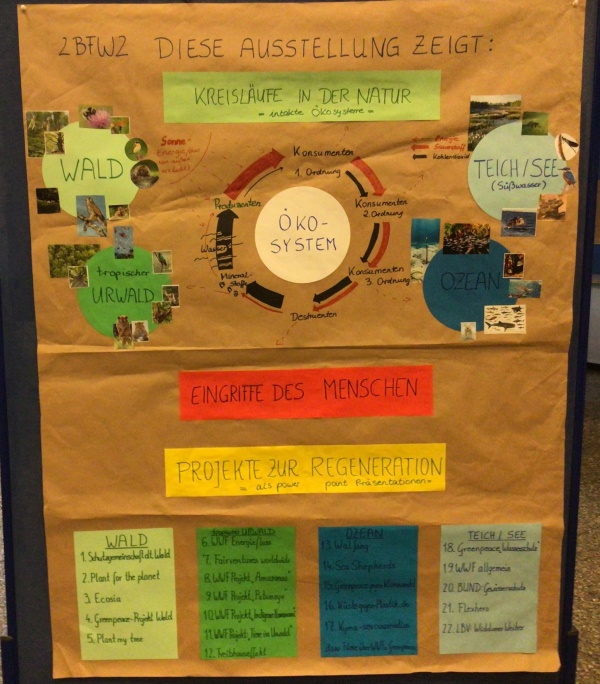 2BFW2 DIESE AUSSTELLUNG ZEIGT:
KREISLÄUFE IN DER NATUR
= intakte Ökosysteme =
WALD
Sonne
TEICH/SEE
(Süßwasser)
Konsumenten
1. Ordnung
Energie
Sauerstoff
Kohlenstoff
Produzenten
ÖKO-
SYSTEM
Konsumenten
2. Ordnung
Wasser
Mineral-
stoffe
Konsumenten
3. Ordnung
Destruenten
tropischer
URWALD
OZEAN
EINGRIFFE DES MENSCHEN
PROJEKTE ZUR REGENERATION
= als power point Präsentationen =
WALD
1. Schutzgemeinschaft dt. Wald
2. Plant for the planet
3. Ecosia
4. Greenpeace-Projekt Wald
5. Plant my tree
URWALD
6. WWF
7. Fairventures worldwide
8. WWF Projekt, Amazonas
9. WWF Projekt, Putumayo
10. WWF Projekt,
11. WWF Projekt,
12. Treibhauseffekt
OZEAN
13.
14. Sea Shepherds
15. Greenpeace gegen
16. Küste gegen Plastik
17.
TEICH / SEE
18. Greenpeace
19. WWF allgemein
20. BUND-
21.
22. LBV-